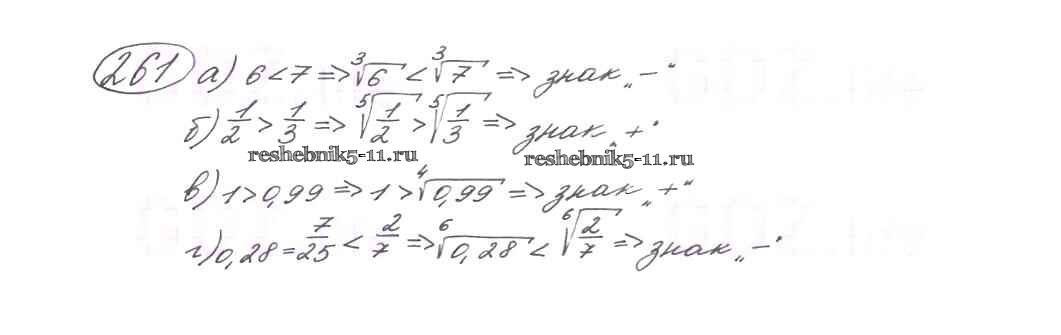 261 а) 6 < 7 => ∛6 < ∛7 => знак „−"
б) 1/2 > 1/3 => ⁵√(1/2) > ⁵√(1/3) => знак „+"
reshebnik5-11.ru reshebnik5-11.ru
в) 1 > 0,99 => 1 > ⁴√0,99 => знак „+"
г) 0,28 = 7/25 < 2/7 => ⁶√0,28 < ⁶√(2/7) => знак „−"